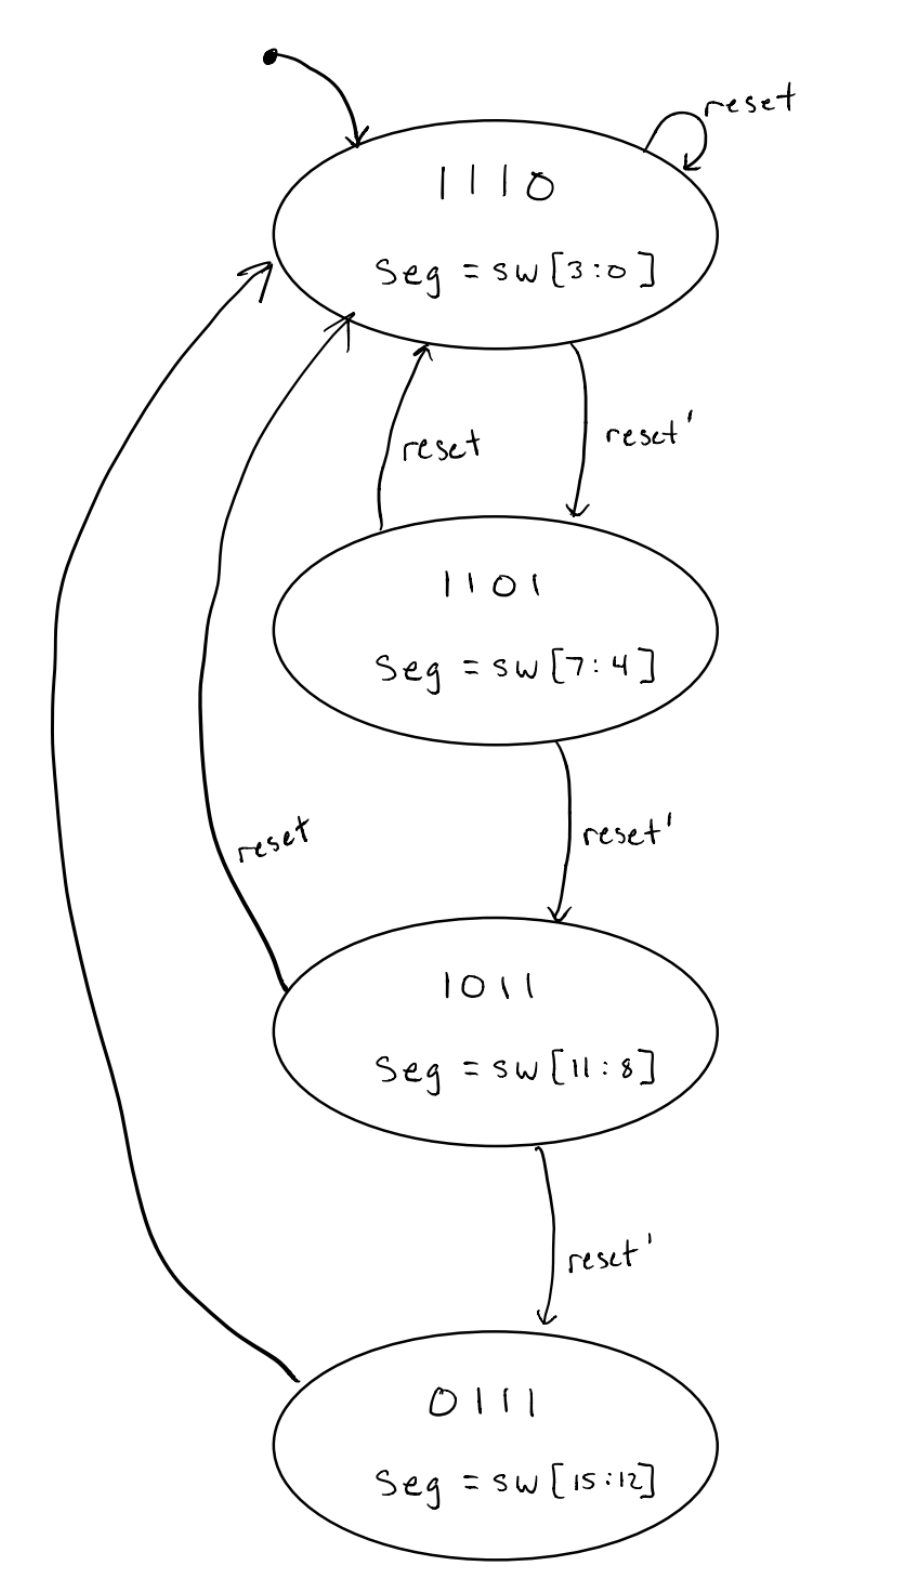 reset
1110
Seg = sw[3:0]
reset
reset'
1101
Seg = sw[7:4]
reset
reset'
1011
Seg = sw[11:8]
reset'
0111
Seg = sw[15:12]